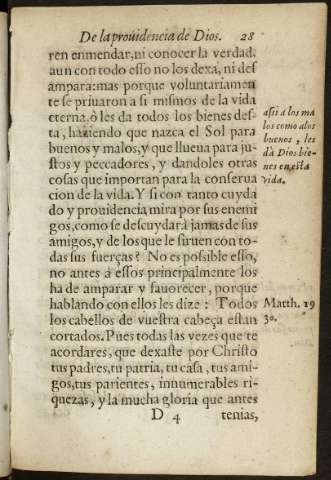 De la prouidencia de Dios. 28
ren enmendar, ni conocer la verdad,
aun con todo esso no los dexa, ni des
ampara: mas porque voluntariamen
te se priuaron a si mismos de la vida
eterna, ò les da todos los bienes des-
ta, haziendo que nazca el Sol para
buenos y malos, y que llueua para ju-
stos y peccadores, y dandoles otras
cosas que importan para la conserua
cion de la vida. Y si con tanto cuyda
do y prouidencia, mira por sus enemi
gos, como se descuydarà jamas de sus
amigos, y de los que le siruen con to-
das sus fuerças? No es possible esso,
no antes a essos principalmente los
ha de amparar y fauorecer, porque
hablando con ellos les dize: Todos
los cabellos de vuestra cabeça estan
cortados. Pues todas las vezes que te
acordares, que dexaste por Christo
tus padres, tu patria, tu casa, tus ami-
gos, tus parientes, innumerables ri-
quezas, y la mucha gloria que antes
D 4 tenias,
assi a los ma
los como a los
buenos, les
dà Dios bie-
nes en esta
vida.
Matth. 19
30.